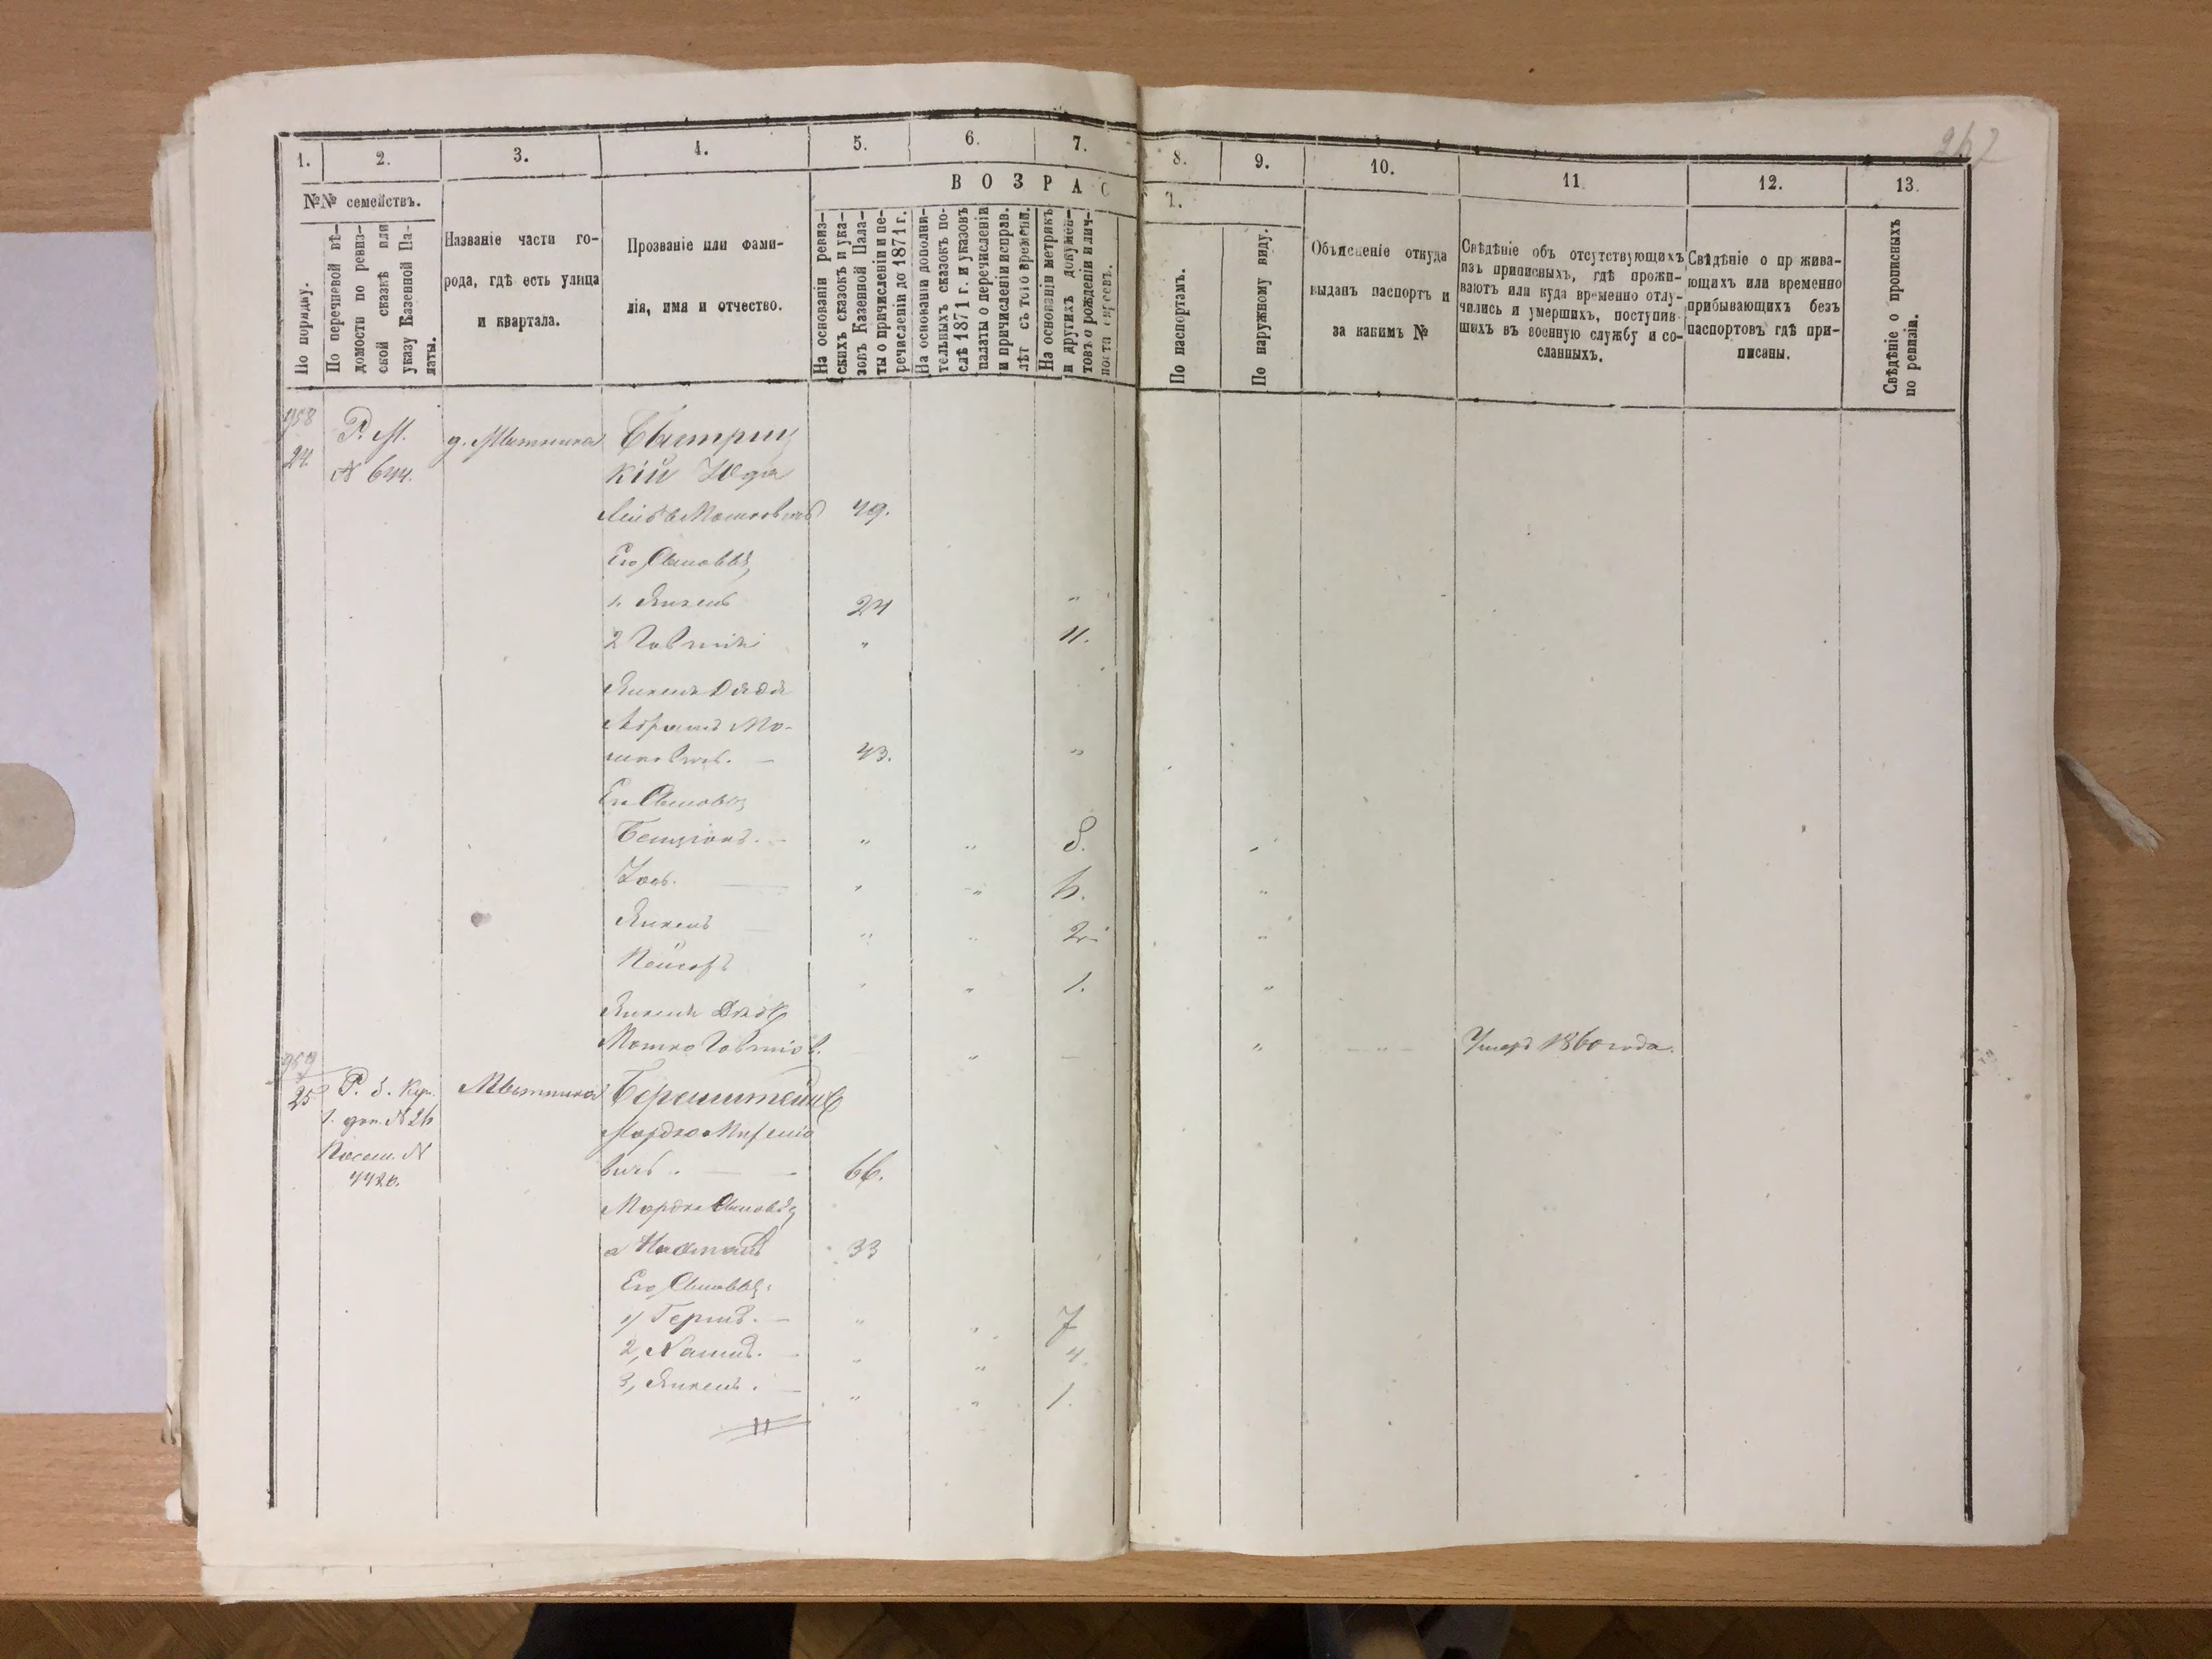 1.
2.
3.
4.
5.
6.
7.
8.
9.
10.
11
12.
13.
№№ семействъ.
По порядку.
По перечневой вѣ-
домости по ревиз-
ской сказкѣ или
указу Казенной Па-
латы.
Названіе части го-
рода, гдѣ есть улица
и квартала.
Прозваніе или фами-
лія, имя и отчество.
ВОЗРАС
Т.
На основаніи ревиз-
скихъ сказокъ и ука-
зовъ Казенной Пала-
ты о причисленіи и пе-
речисленіи до 1871 г.
На основаніи дополни-
тельныхъ сказокъ по-
слѣ 1871 г. и указовъ
палаты о перечисленіи
и причисленіи исправ.
лѣт съ того времени.
На основаніи метрикъ
и другихъ докумен-
товъ о рожденіи и лич-
ности евреевъ.
По паспортамъ.
По наружному виду.
Объясненіе откуда
выданъ паспортъ и
за какимъ №
Свѣдѣніе объ отсутствующихъ
изъ приписныхъ, гдѣ прожи-
ваютъ или куда временно отлу-
чились и умершихъ, поступив-
шихъ въ военную службу и со-
сланныхъ.
Свѣдѣніе о пр жива-
ющихъ или временно
прибывающихъ безъ
паспортовъ гдѣ при-
писаны.
Свѣдѣніе о прописныхъ
по ревизіи.
958
24
Р. М. д. Мытника
№ 644.
кій Юда
Лейбъ Мошковичъ 49.
Его Сыновья
1. Янкель 24 "
2 Говшій " 11.
Янкеля Дядя
Абрамъ Мо-
шковичъ. — 43. "
Его Сыновья
Бенціонъ. - " " 8. "
Іось. — " " 6. "
Янкель — " " 2. "
Кейсоръ " " 1. "
Янкеля Дядя
Мошко Говшіов. " — " — " — Умеръ 1860 года.
959
25 Р. 3. Куп. Мытника Беренштейнъ
1. доп. № 26
Мордко
вичъ. — - 66.
4420.
Мордка Сыновья
а Нахманъ 33
Его Сыновья:
1, Гершъ. — " " 7
2, Хаимъ. - " " 4.
3, Янкель. — " " 1.